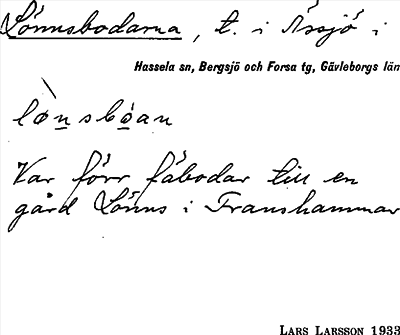 Lönnsbodarna, t. i Åssjö i
Hassela sn, Bergsjö och Forsa tg, Gävleborgs län
lø̀nsbóan
Var förr fäbodar till en
gård Lönns i Franshammar
LARS LARSSON 1933